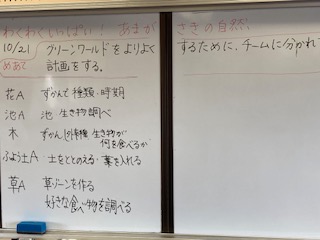 わくわくいっぱい！ あまがさきの自然！
10/21 グリーンワールドをよりよくするために、チームに分かれて
めあて 計画をする。
花A ずかんで 種類・時期
池A 池 生き物調べ
木 ずかん(外来種 生き物が
何を食べるか
ふよう土A ・土をととのえる・葉を入れる
草A 草ゾーンを作る
好きな食べ物を調べる